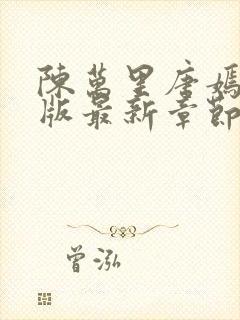 陳萬里唐嫣
版最新章節
曾泓